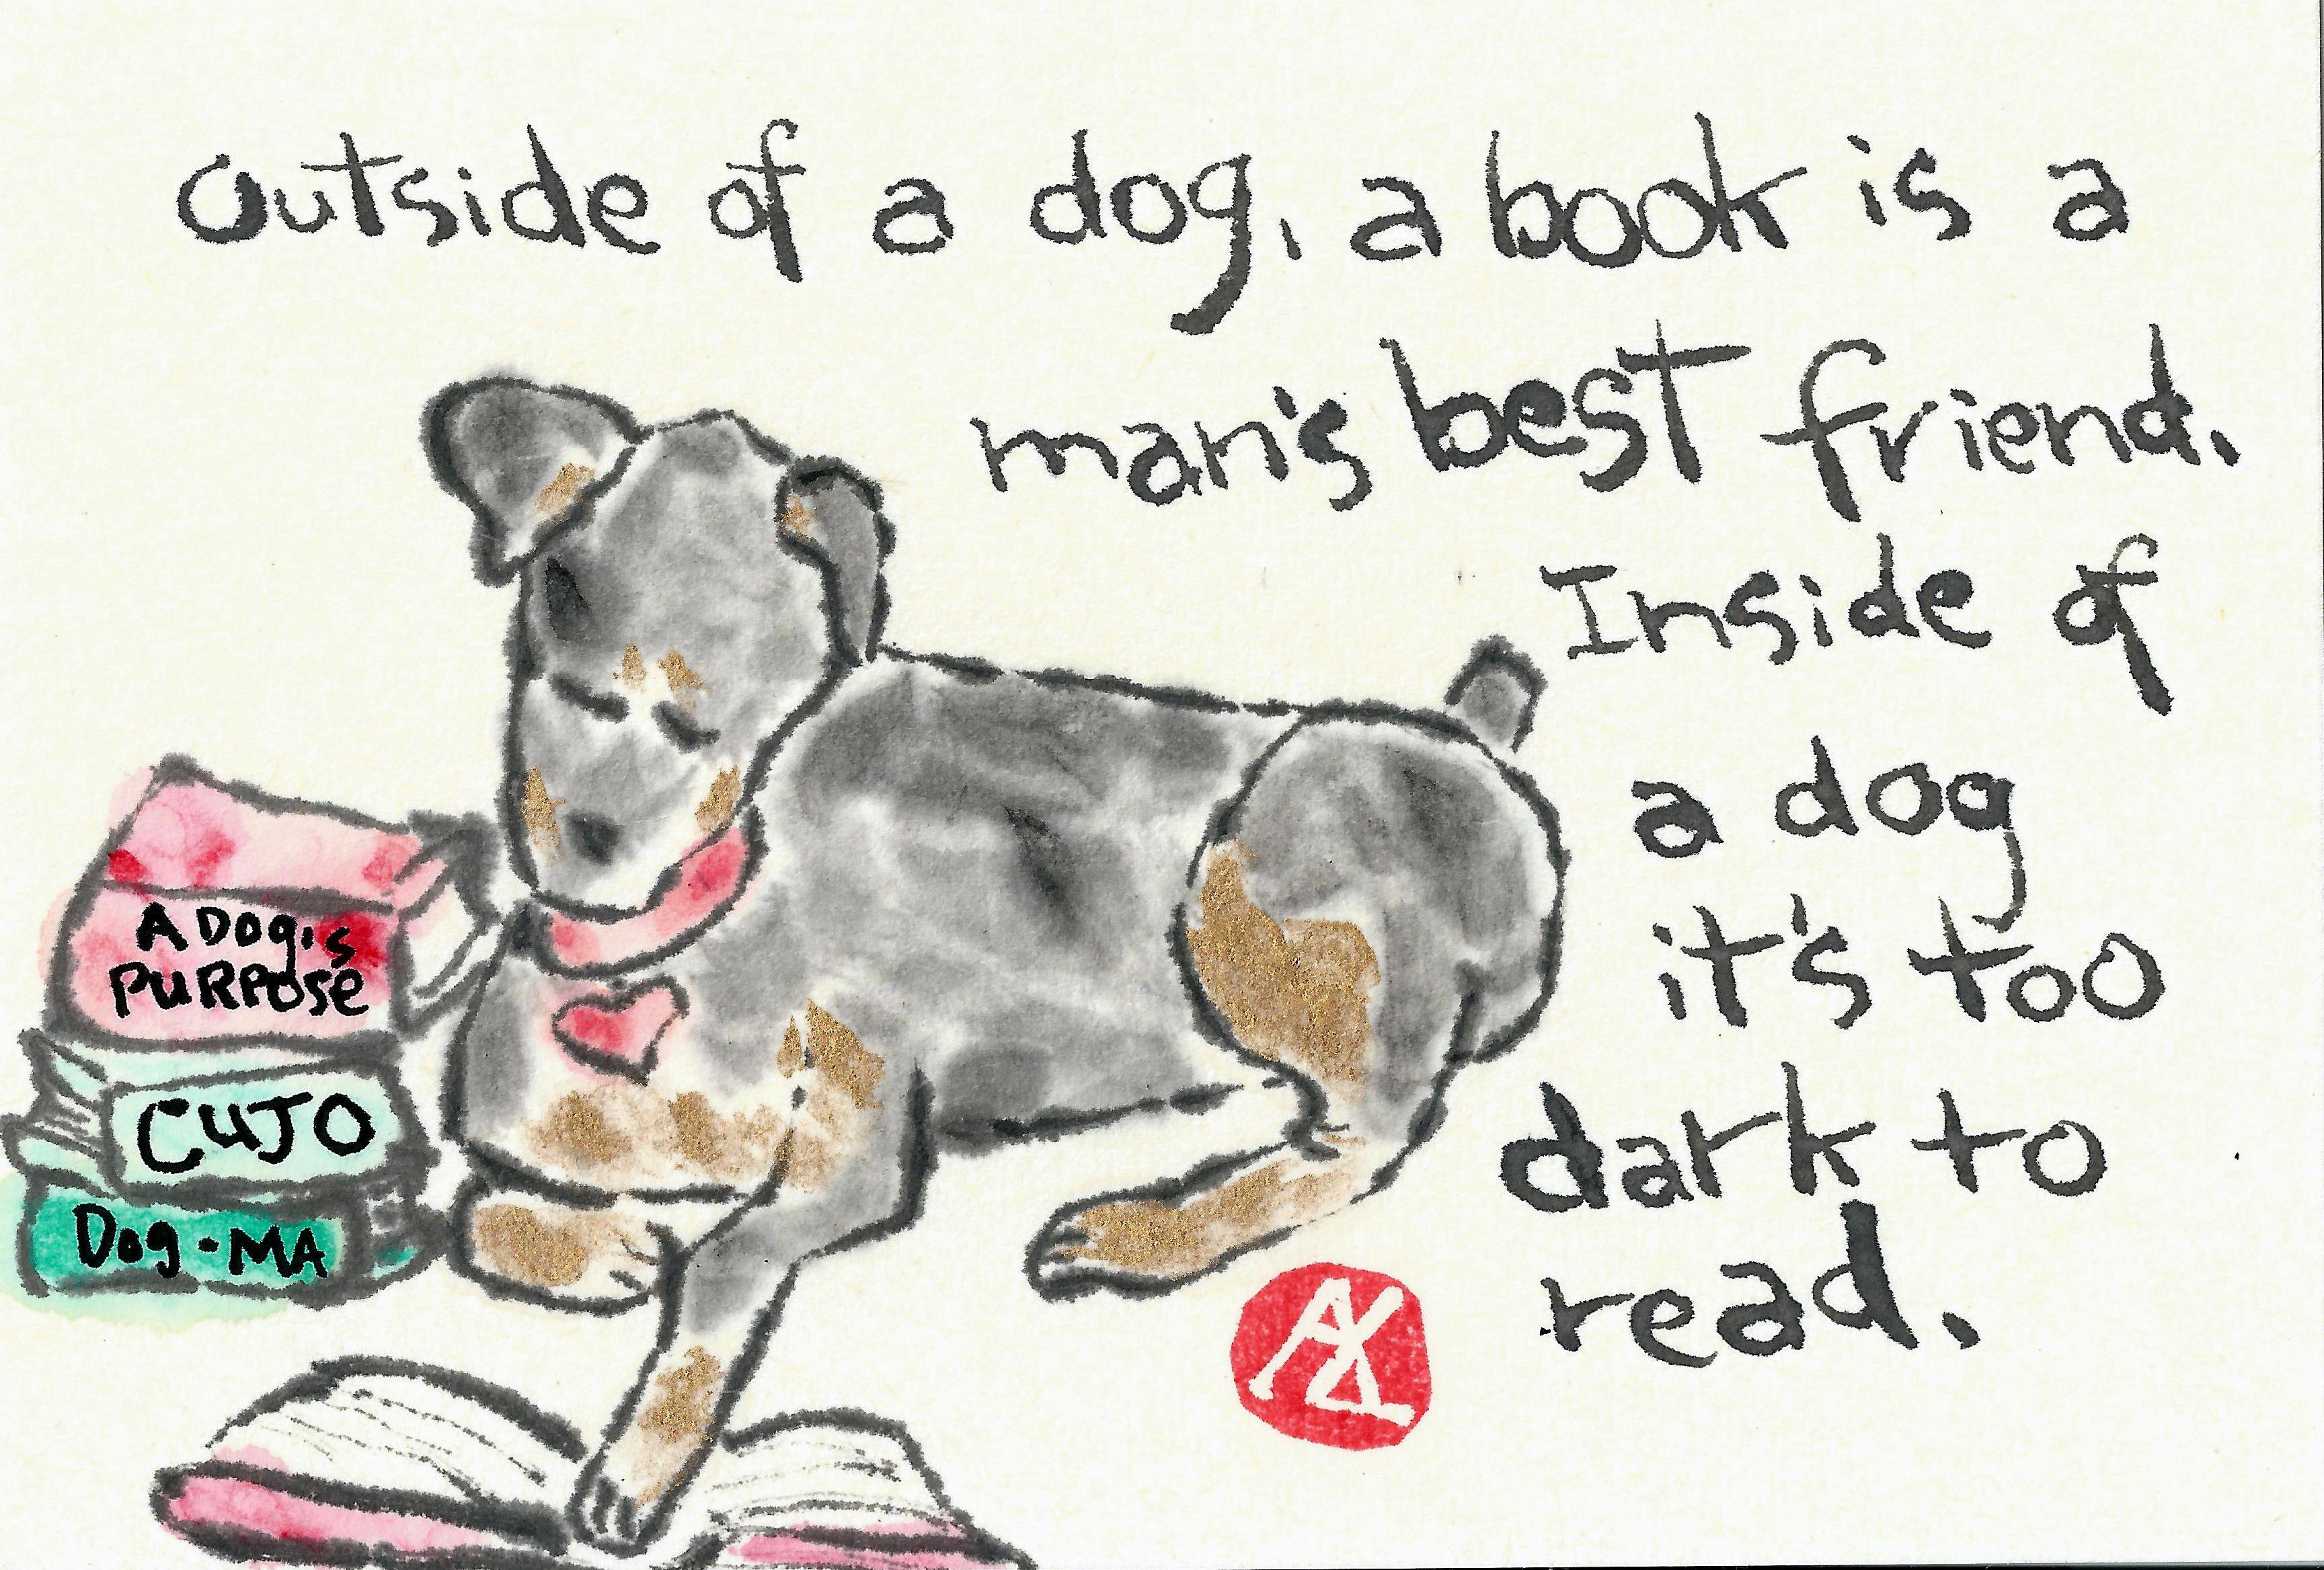 outside of a dog, a book is a
man's best friend.
Inside of
a dog
it's too
dark to
read.
A DOg's
PuRPOSe
CUJO
Dog-MA